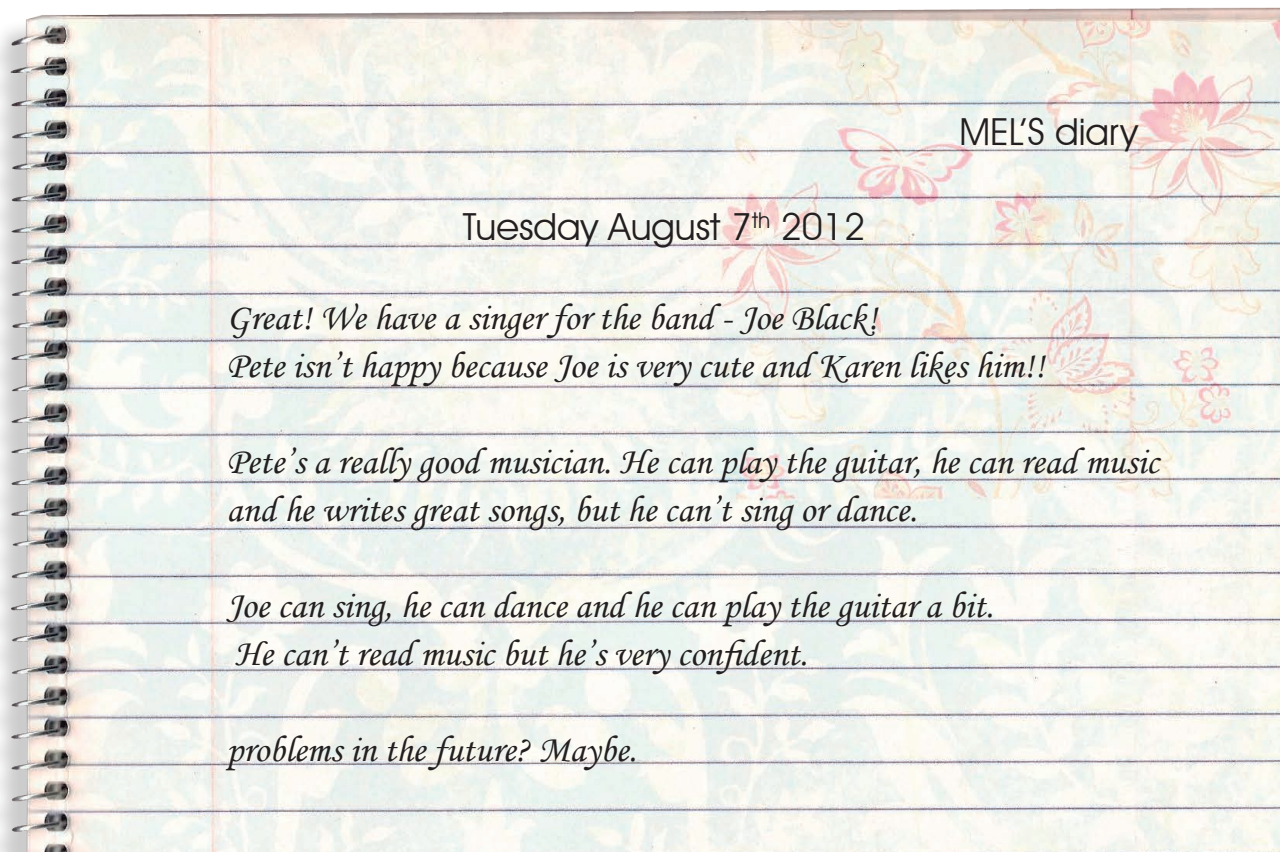 MEL'S diary
Tuesday August 7th 2012
Great! We have a singer for the band - Joe Black!
Pete isn't happy because Joe is very cute and Karen likes him!!
Pete's a really good musician. He can play the guitar, he can read music
and he writes great songs, but he can't sing or dance.
Joe can sing, he can dance and he can play the guitar a bit.
He can't read music but he's very confident.
problems in the future? Maybe.